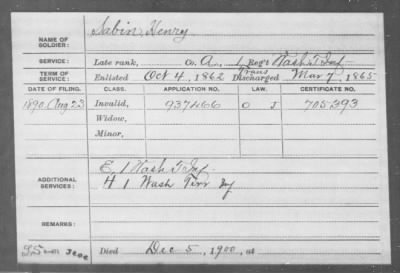 NAME OF SOLDIER: Sabin, Henry
SERVICE: Late rank, Co. A, 1 Reg't Wash T Inf
TERM OF SERVICE: Enlisted Oct 4, 1862 Trans Discharged Mar 7, 1865
DATE OF FILING. CLASS. APPLICATION NO. LAW. CERTIFICATE NO.
1890. Aug 23 Invalid, 937466 O J 705393
Widow,
Minor,
E, 1 Wash T Inf
ADDITIONAL SERVICES: H 1 Wash Terr Inf
REMARKS:
Died Dec 5, 1900, at